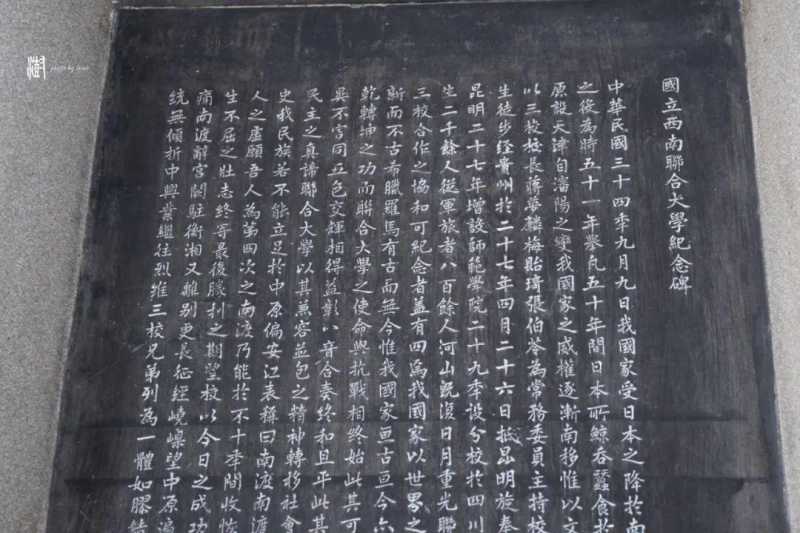 國立西南聯合大學紀念碑
中華民國三十四年九月九日我國家受日本之降於南
之役為時五十一年舉凡五十年間日本所鯨吞蠶食於
原設天津自瀋陽之變我國家之威權逐漸南移惟以文
以三校校長蔣夢麟梅貽琦張伯苓為常務委員主持校
生徒步經貴州於二十七年四月二十六日抵昆明旋奉
昆明二十七年增設師範學院二十九年設分校於四川
生二千餘人從軍旅者八百餘人河山既復日月重光聯
三校合作之協和可紀念者蓋有四焉我國家以世界之
斯而不古希臘羅馬有古而無今惟我國家亘古亘今亦
乾轉坤之功而聯合大學之使命與抗戰相終始此其可
異不害同五色交輝相得益彰八音合奏終和且平此其
民主之真諦聯合大學以其兼容並包之精神轉移社會
史我民族若不能立足於中原偏安江表稱曰南渡南渡
人之虛願吾人為第四次之南渡乃能於不十年間收恢
生不屈之壯志終寄最後勝利之期望校以今日之成功
痛南渡辭宮闕駐衡湘又離別更長征經嶢嵲望中原遍
統無傾折中興業繼往烈維三校兄弟列為一體如膠結
photo by